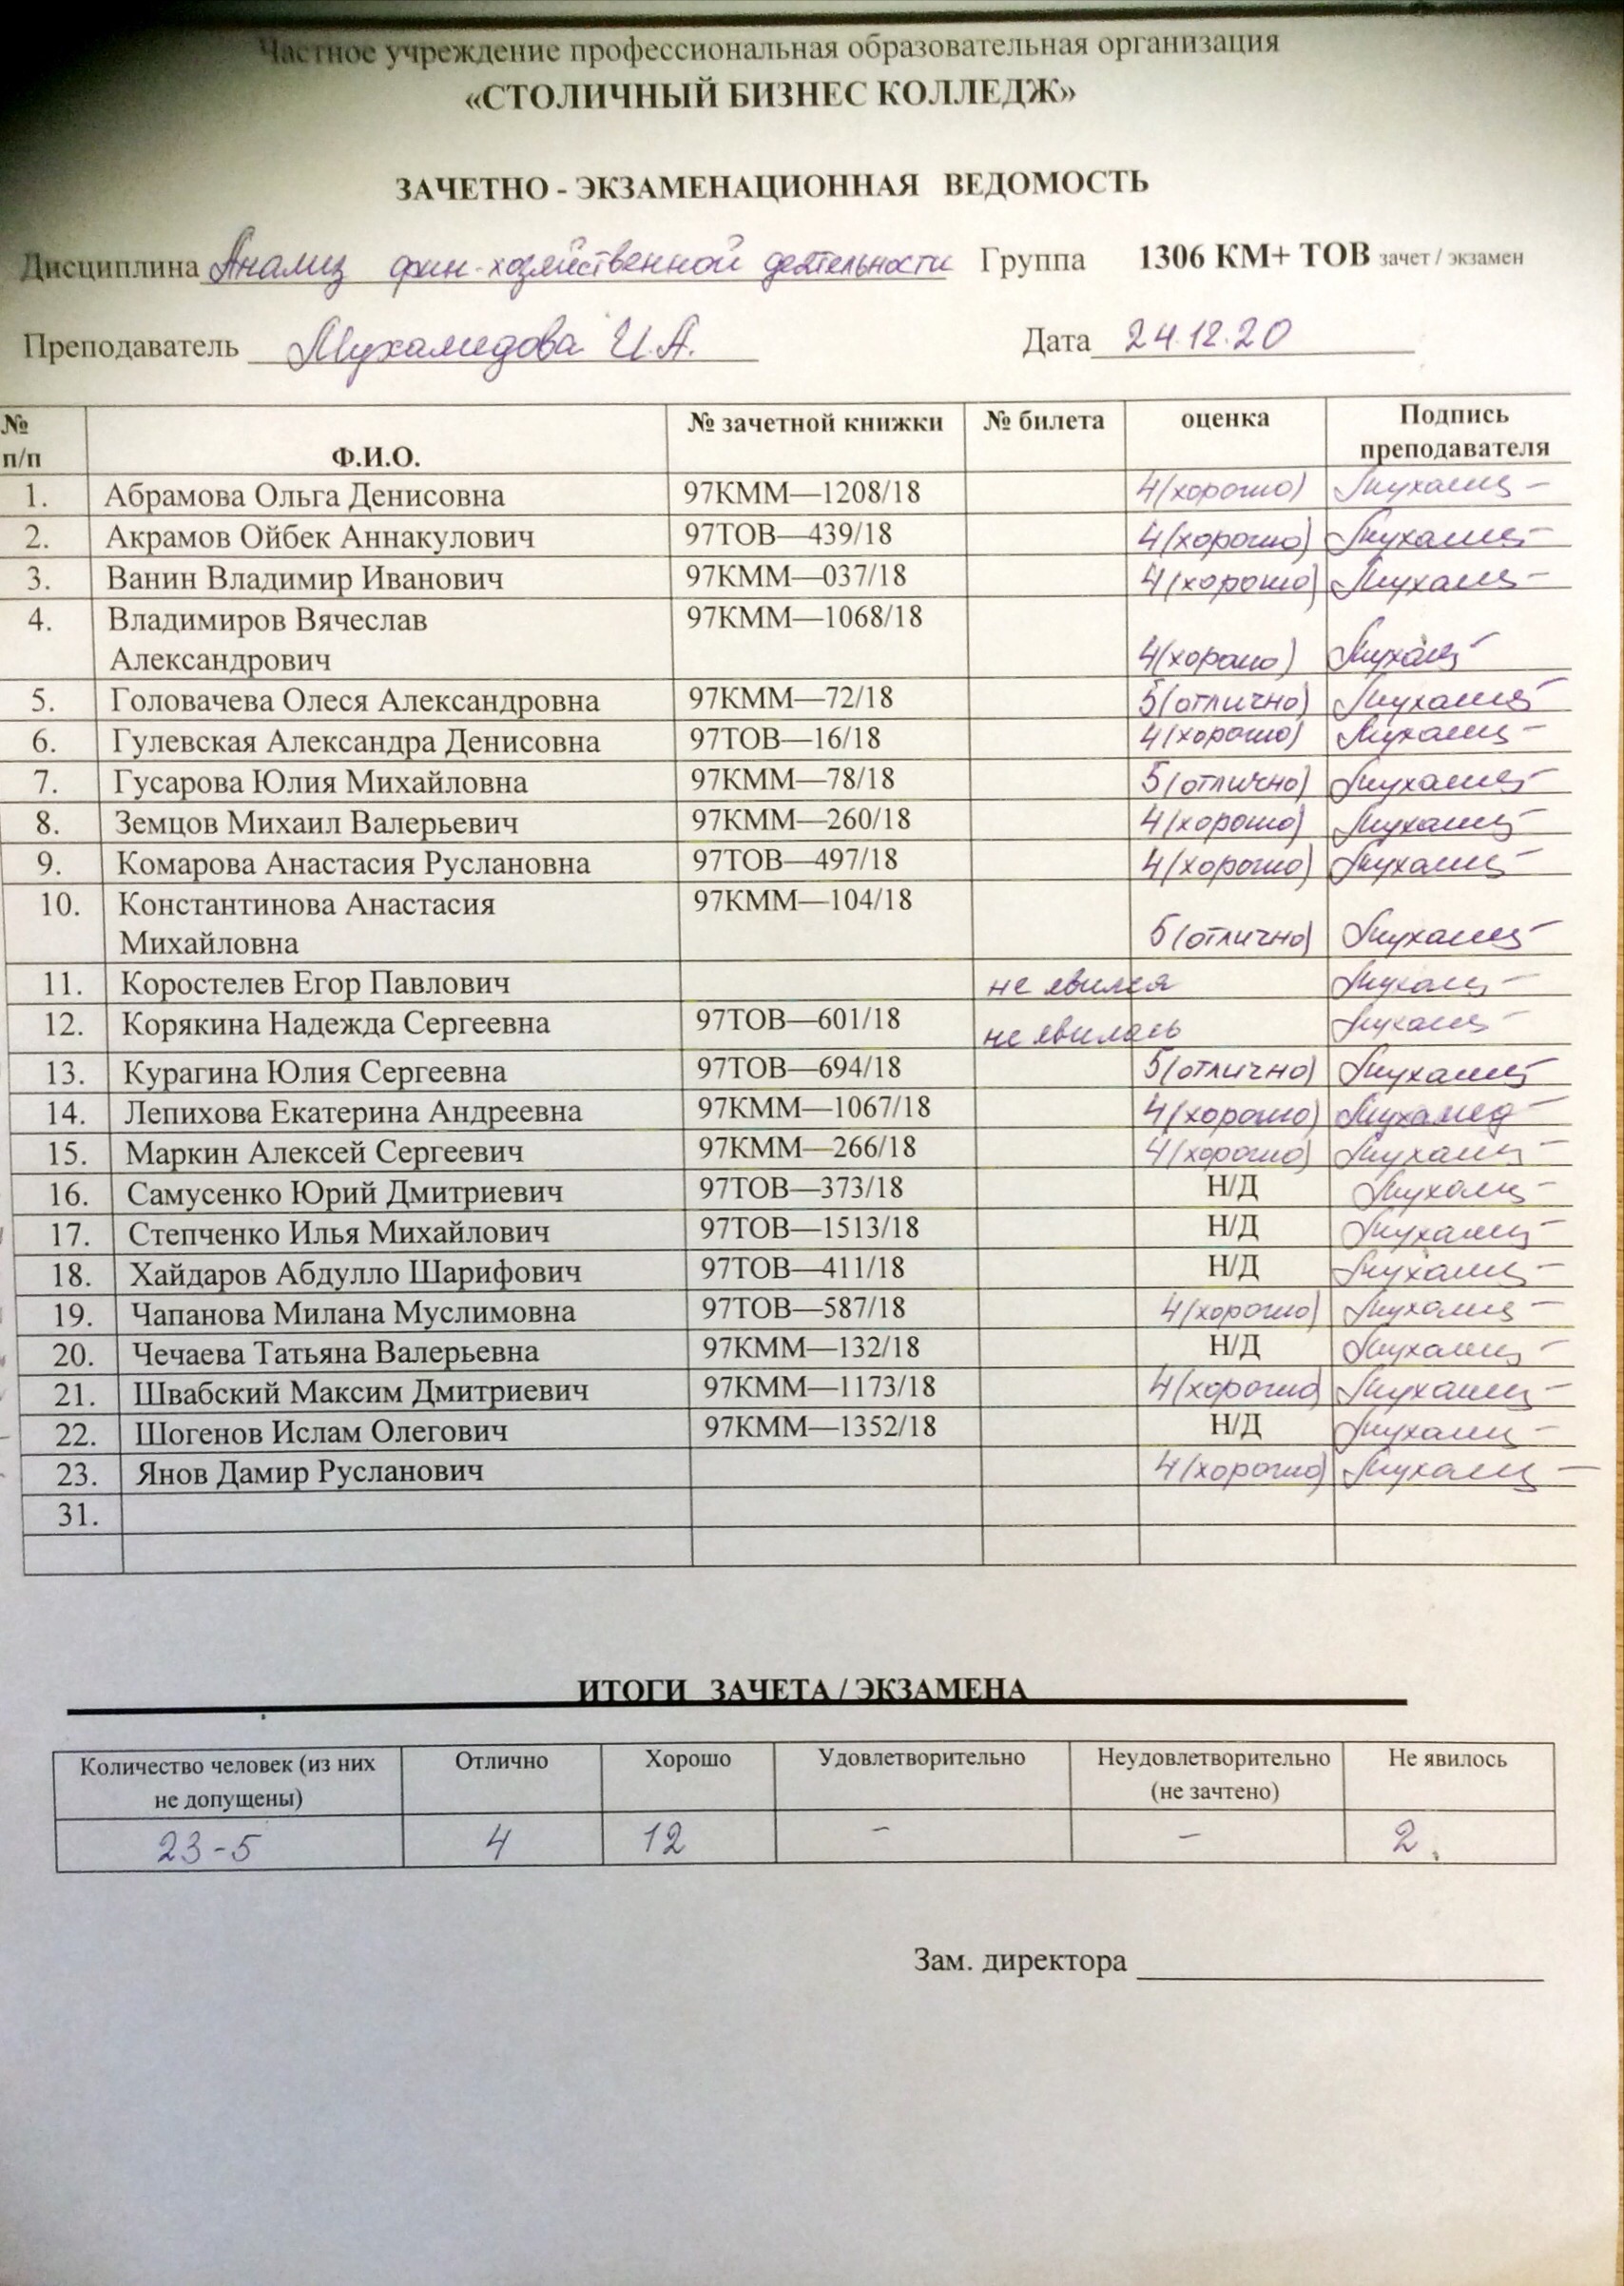 Частное учреждение профессиональная образовательная организация
«СТОЛИЧНЫЙ БИЗНЕС КОЛЛЕДЖ»
ЗАЧЕТНО - ЭКЗАМЕНАЦИОННАЯ ВЕДОМОСТЬ
Дисциплина Анализ фин-хозяйственной деятельности Группа 1306 КМ+ ТОВ зачет / экзамен
Преподаватель Мухамедова И.А. Дата 24.12.20
№ п/п Ф.И.О. № зачетной книжки № билета оценка Подпись преподавателя
1. Абрамова Ольга Денисовна 97КММ—1208/18 4(хорошо)
2. Акрамов Ойбек Аннакулович 97ТОВ—439/18 4(хорошо)
3. Ванин Владимир Иванович 97КММ—037/18 4(хорошо)
4. Владимиров Вячеслав 97КММ—1068/18
Александрович 4(хорошо)
5. Головачева Олеся Александровна 97КММ—72/18 5(отлично)
6. Гулевская Александра Денисовна 97ТОВ—16/18 4(хорошо)
7. Гусарова Юлия Михайловна 97КММ—78/18 5(отлично)
8. Земцов Михаил Валерьевич 97КММ—260/18 4(хорошо)
9. Комарова Анастасия Руслановна 97ТОВ—497/18 4(хорошо)
10. Константинова Анастасия 97КММ—104/18
Михайловна 5(отлично)
11. Коростелев Егор Павлович не явился
12. Корякина Надежда Сергеевна 97ТОВ—601/18 не явилась
13. Курагина Юлия Сергеевна 97ТОВ—694/18 5(отлично)
14. Лепихова Екатерина Андреевна 97КММ—1067/18 4(хорошо)
15. Маркин Алексей Сергеевич 97КММ—266/18 4(хорошо)
16. Самусенко Юрий Дмитриевич 97ТОВ—373/18 Н/Д
17. Степченко Илья Михайлович 97ТОВ—1513/18 Н/Д
18. Хайдаров Абдулло Шарифович 97ТОВ—411/18 Н/Д
19. Чапанова Милана Муслимовна 97ТОВ—587/18 4(хорошо)
20. Чечаева Татьяна Валерьевна 97КММ—132/18 Н/Д
21. Швабский Максим Дмитриевич 97КММ—1173/18 4(хорошо)
22. Шогенов Ислам Олегович 97КММ—1352/18 Н/Д
23. Янов Дамир Русланович 4(хорошо)
31.
ИТОГИ ЗАЧЕТА / ЭКЗАМЕНА
Количество человек (из них не допущены) Отлично Хорошо Удовлетворительно Неудовлетворительно (не зачтено) Не явилось
23-5 4 12 - - 2.
Зам. директора